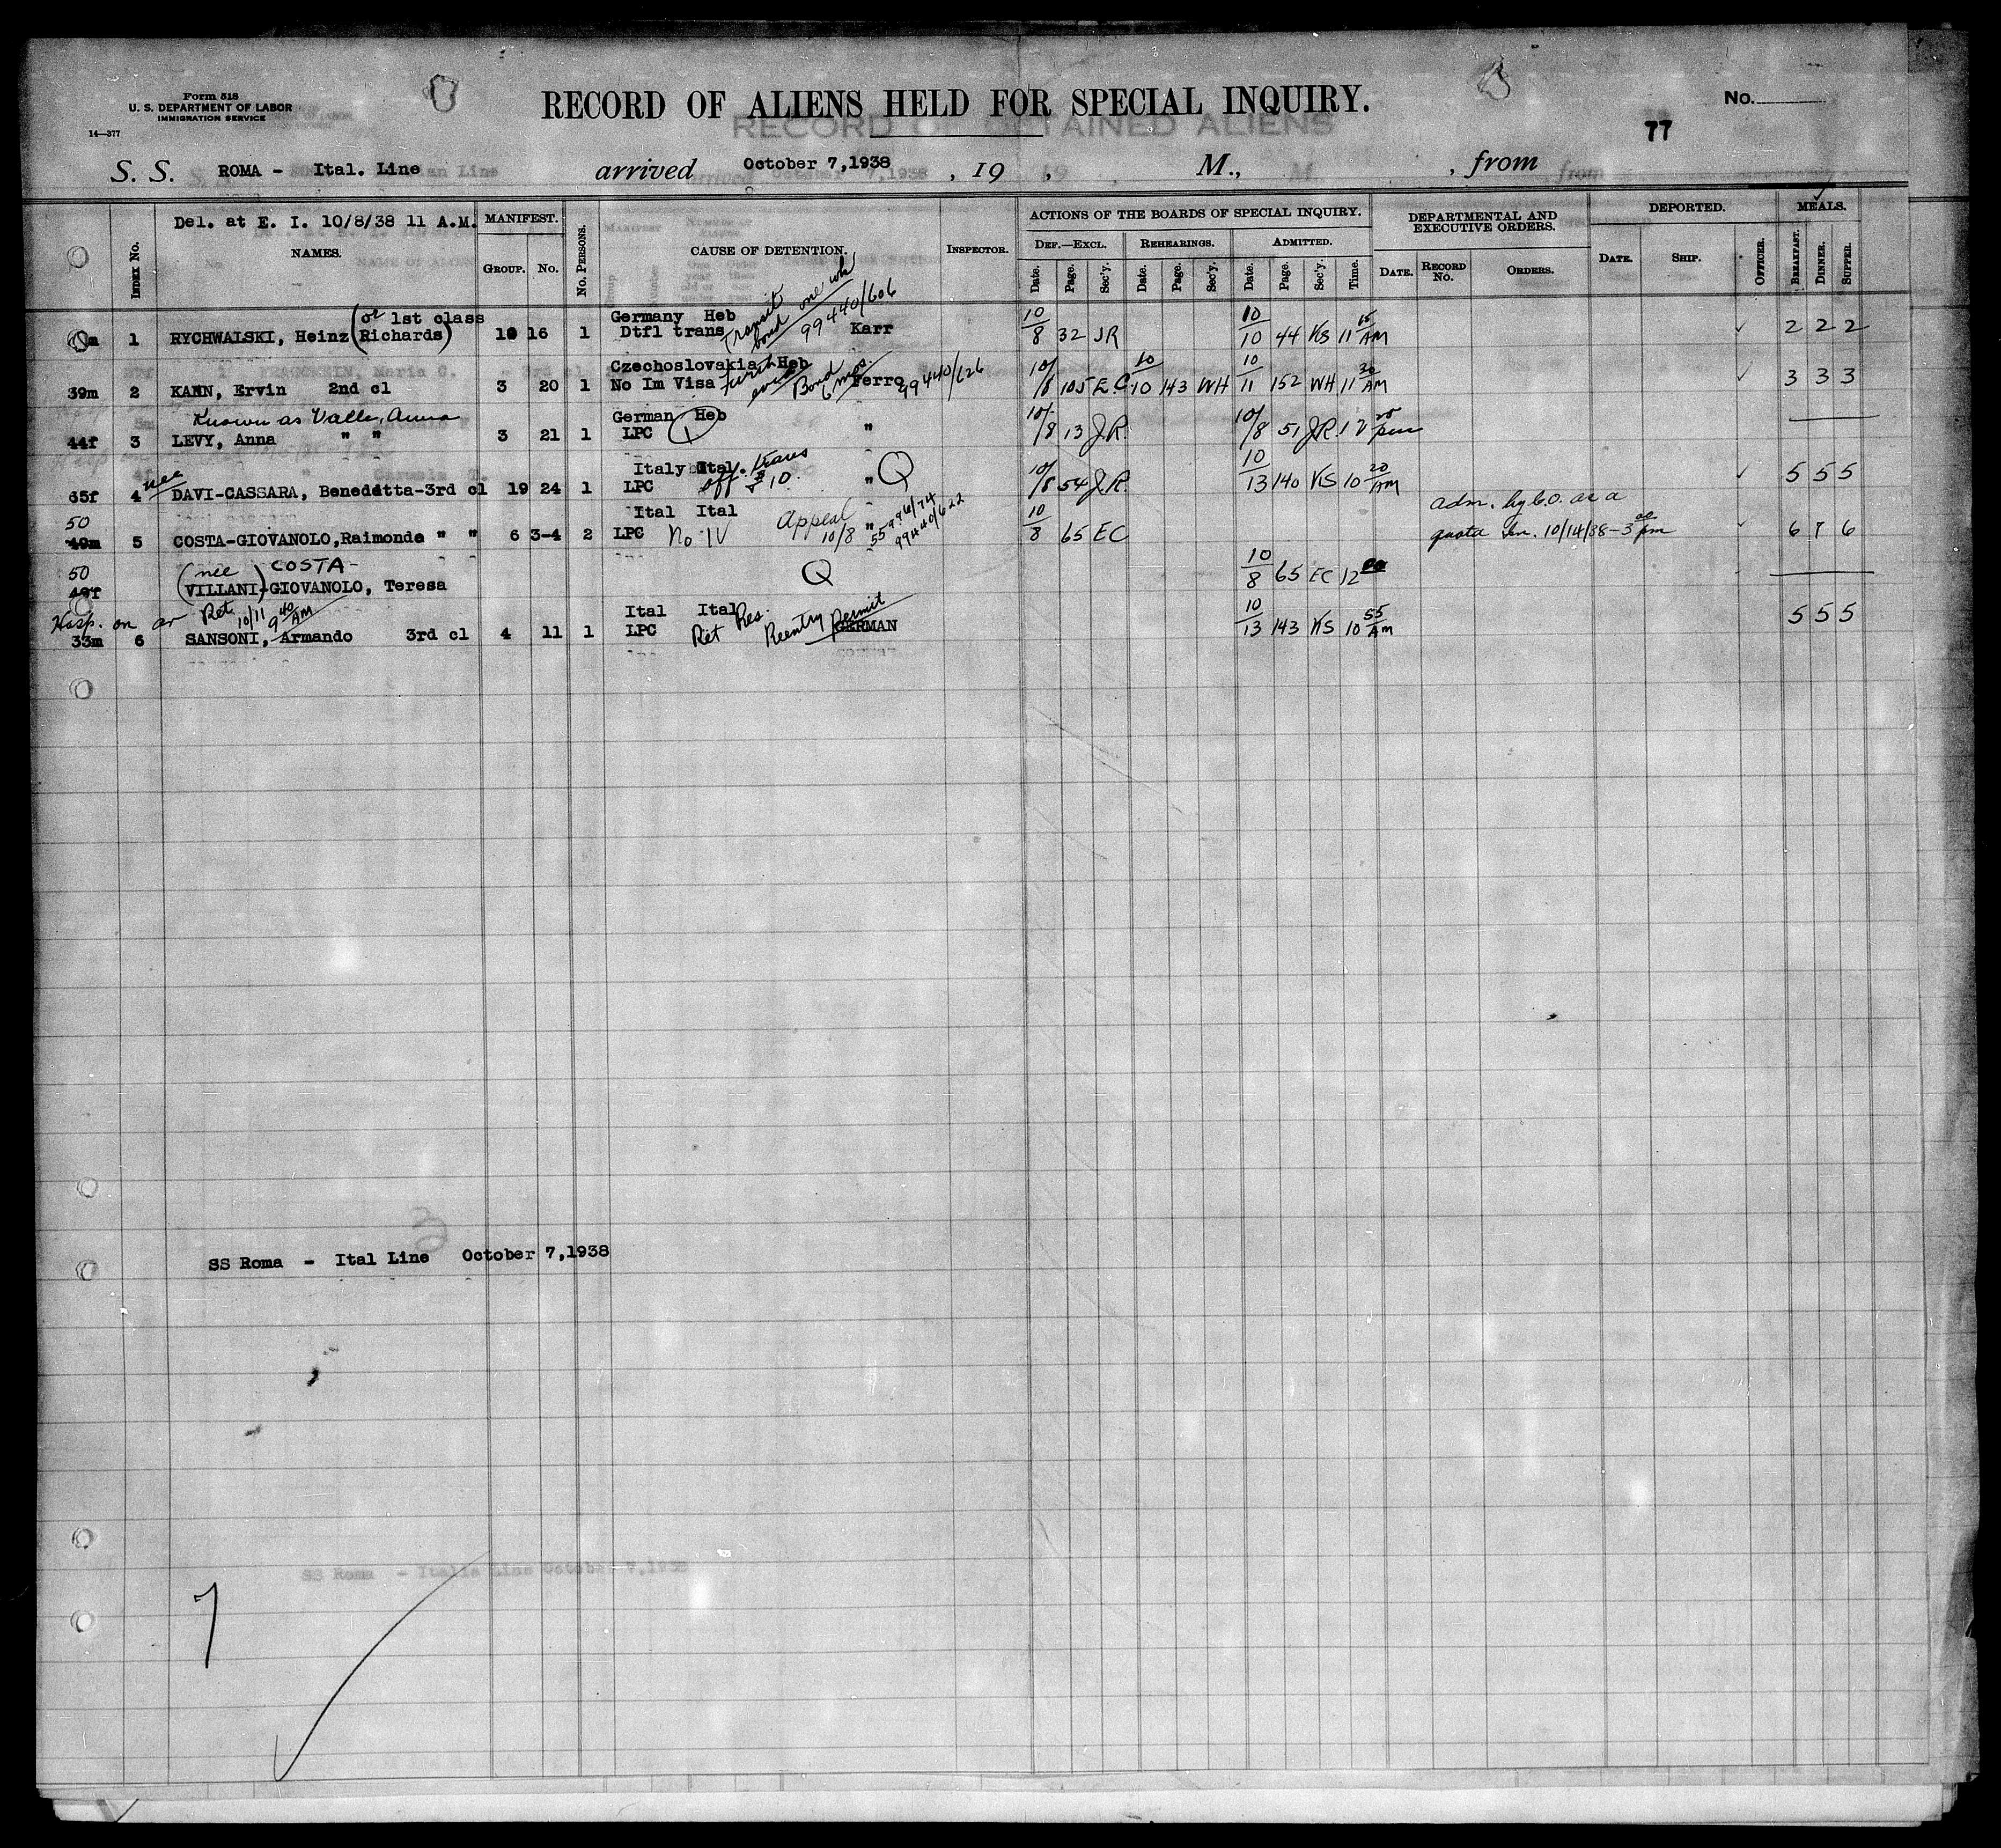 Form 518
U. S. DEPARTMENT OF LABOR
IMMIGRATION SERVICE
14—377
RECORD OF ALIENS HELD FOR SPECIAL INQUIRY.
RECORD OF DETAINED ALIENS
No.
77
S. S. ROMA - Ital. Line arrived October 7,1938 , 19 , M., , from
Del. at E. I. 10/8/38 11 A.M.
INDEX No. NAMES. MANIFEST. GROUP. No. No. PERSONS. CAUSE OF DETENTION. INSPECTOR.
ACTIONS OF THE BOARDS OF SPECIAL INQUIRY.
DEF.—EXCL. REHEARINGS. ADMITTED.
Date. Page. Sec'y. Date. Page. Sec'y. Date. Page. Sec'y. Time.
DEPARTMENTAL AND EXECUTIVE ORDERS.
DATE. RECORD No. ORDERS.
DEPORTED.
DATE. SHIP. OFFICER.
MEALS.
BREAKFAST. DINNER. SUPPER.
(or 1st class Germany Heb Transit bond one wk 99440/606
m 1 RYCHWALSKI, Heinz (Richards) 10 16 1 Dtfl trans Karr 10/8 32 JR 10/10 44 KS 11 15 AM 2 2 2
Czechoslovakia Heb
39m 2 KANN, Ervin 2nd cl 3 20 1 No Im Visa Bond 6 mos. Ferro 99440/626 10/8 105 EC 10/10 143 WH 10/11 152 WH 11 30 AM 3 3 3
Known as Valle, Anna German Heb
44f 3 LEVY, Anna " " 3 21 1 LPC " 10/8 13 J.R. 10/8 51 JR 12 20 pm
nee Italy Ital. trans
65f 4 DAVI-CASSARA, Benedetta-3rd cl 19 24 1 LPC off $10. " Q 10/8 54 J.R. 10/13 140 KS 10 20 AM 5 5 5
50 Ital Ital Appeal 10/8 55996/74 99440/622 adm. by C.O. as a
49m 5 COSTA-GIOVANOLO, Raimonde " " 6 3-4 2 LPC No IV " 10/8 65 EC quota Im. 10/14/38-3 pm 6 7 6
50 (nee) COSTA-
49f VILLANI-GIOVANOLO, Teresa Q 10/8 65 EC 12
Hosp. on ar Ret 10/11 9 40 AM Ital Ital
33m 6 SANSONI, Armando 3rd cl 4 11 1 LPC Ret Res. Reentry permit GERMAN 10/13 143 KS 10 55 AM 5 5 5
SS Roma - Ital Line October 7,1938
SS Roma - Italia Line October 7,1938
7